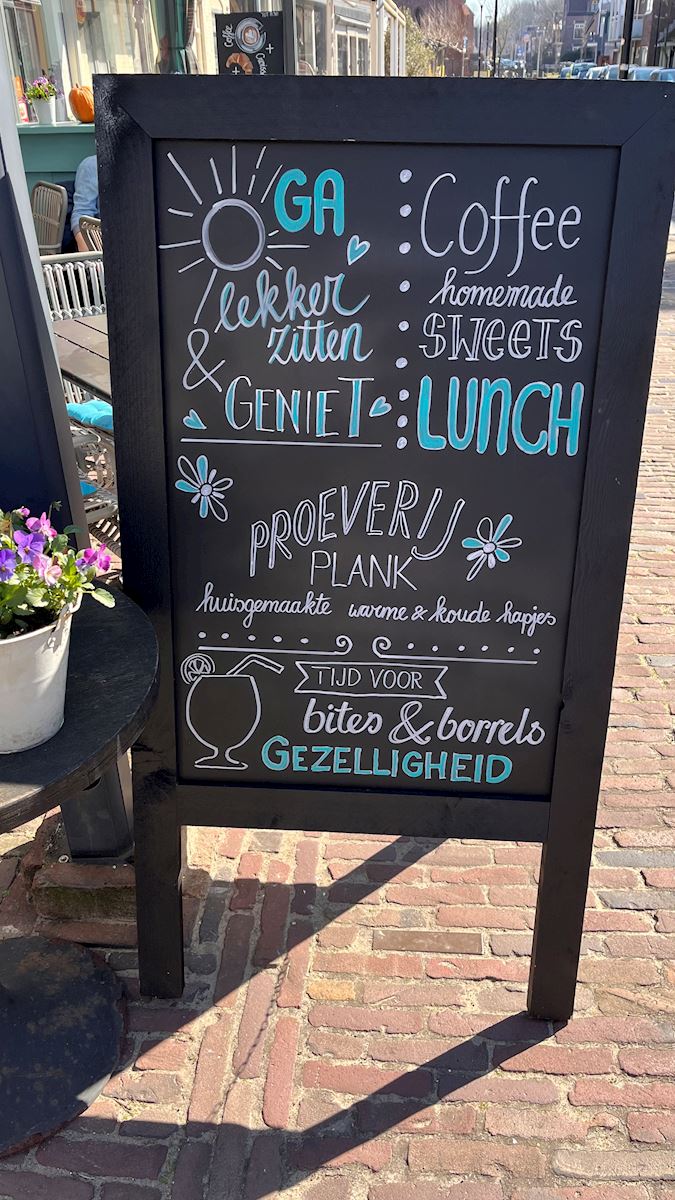 Coffee
GA
lekker
zitten
&
GENIET
Coffee
homemade
SWEETS
LUNCH
PROEVERIJ
PLANK
huisgemaakte warme & koude hapjes
TIJD VOOR
bites & borrels
GEZELLIGHEID